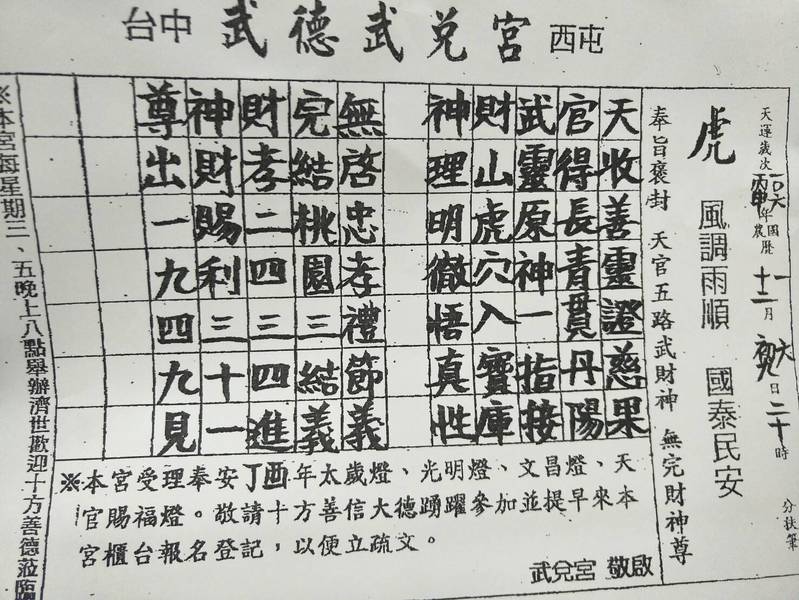 台中 武德武兌宮 西屯
天運歲次 一〇六 丙申 年 國曆 農曆 一 十二 月 六 初九 日 二十時 分扶筆
虎 風調雨順 國泰民安
奉旨褒封 天官五路武財神 無完財神尊
天收善靈證慈果
官得長青貫丹陽
武靈原神一指接
財山虎穴入寶庫
神理明徹悟真性
無啓忠孝禮節義
完結桃園三結義
財孝二四三四進
神財賜利三十一
尊出一九四九見
※本宮每星期三、五晚上八點舉辦濟世歡迎十方善德蒞臨
※本宮受理奉安丁酉年太歲燈、光明燈、文昌燈、天
官賜福燈。敬請十方善信大德踴躍參加並提早來本
宮櫃台報名登記，以便立疏文。
武兌宮 敬啟